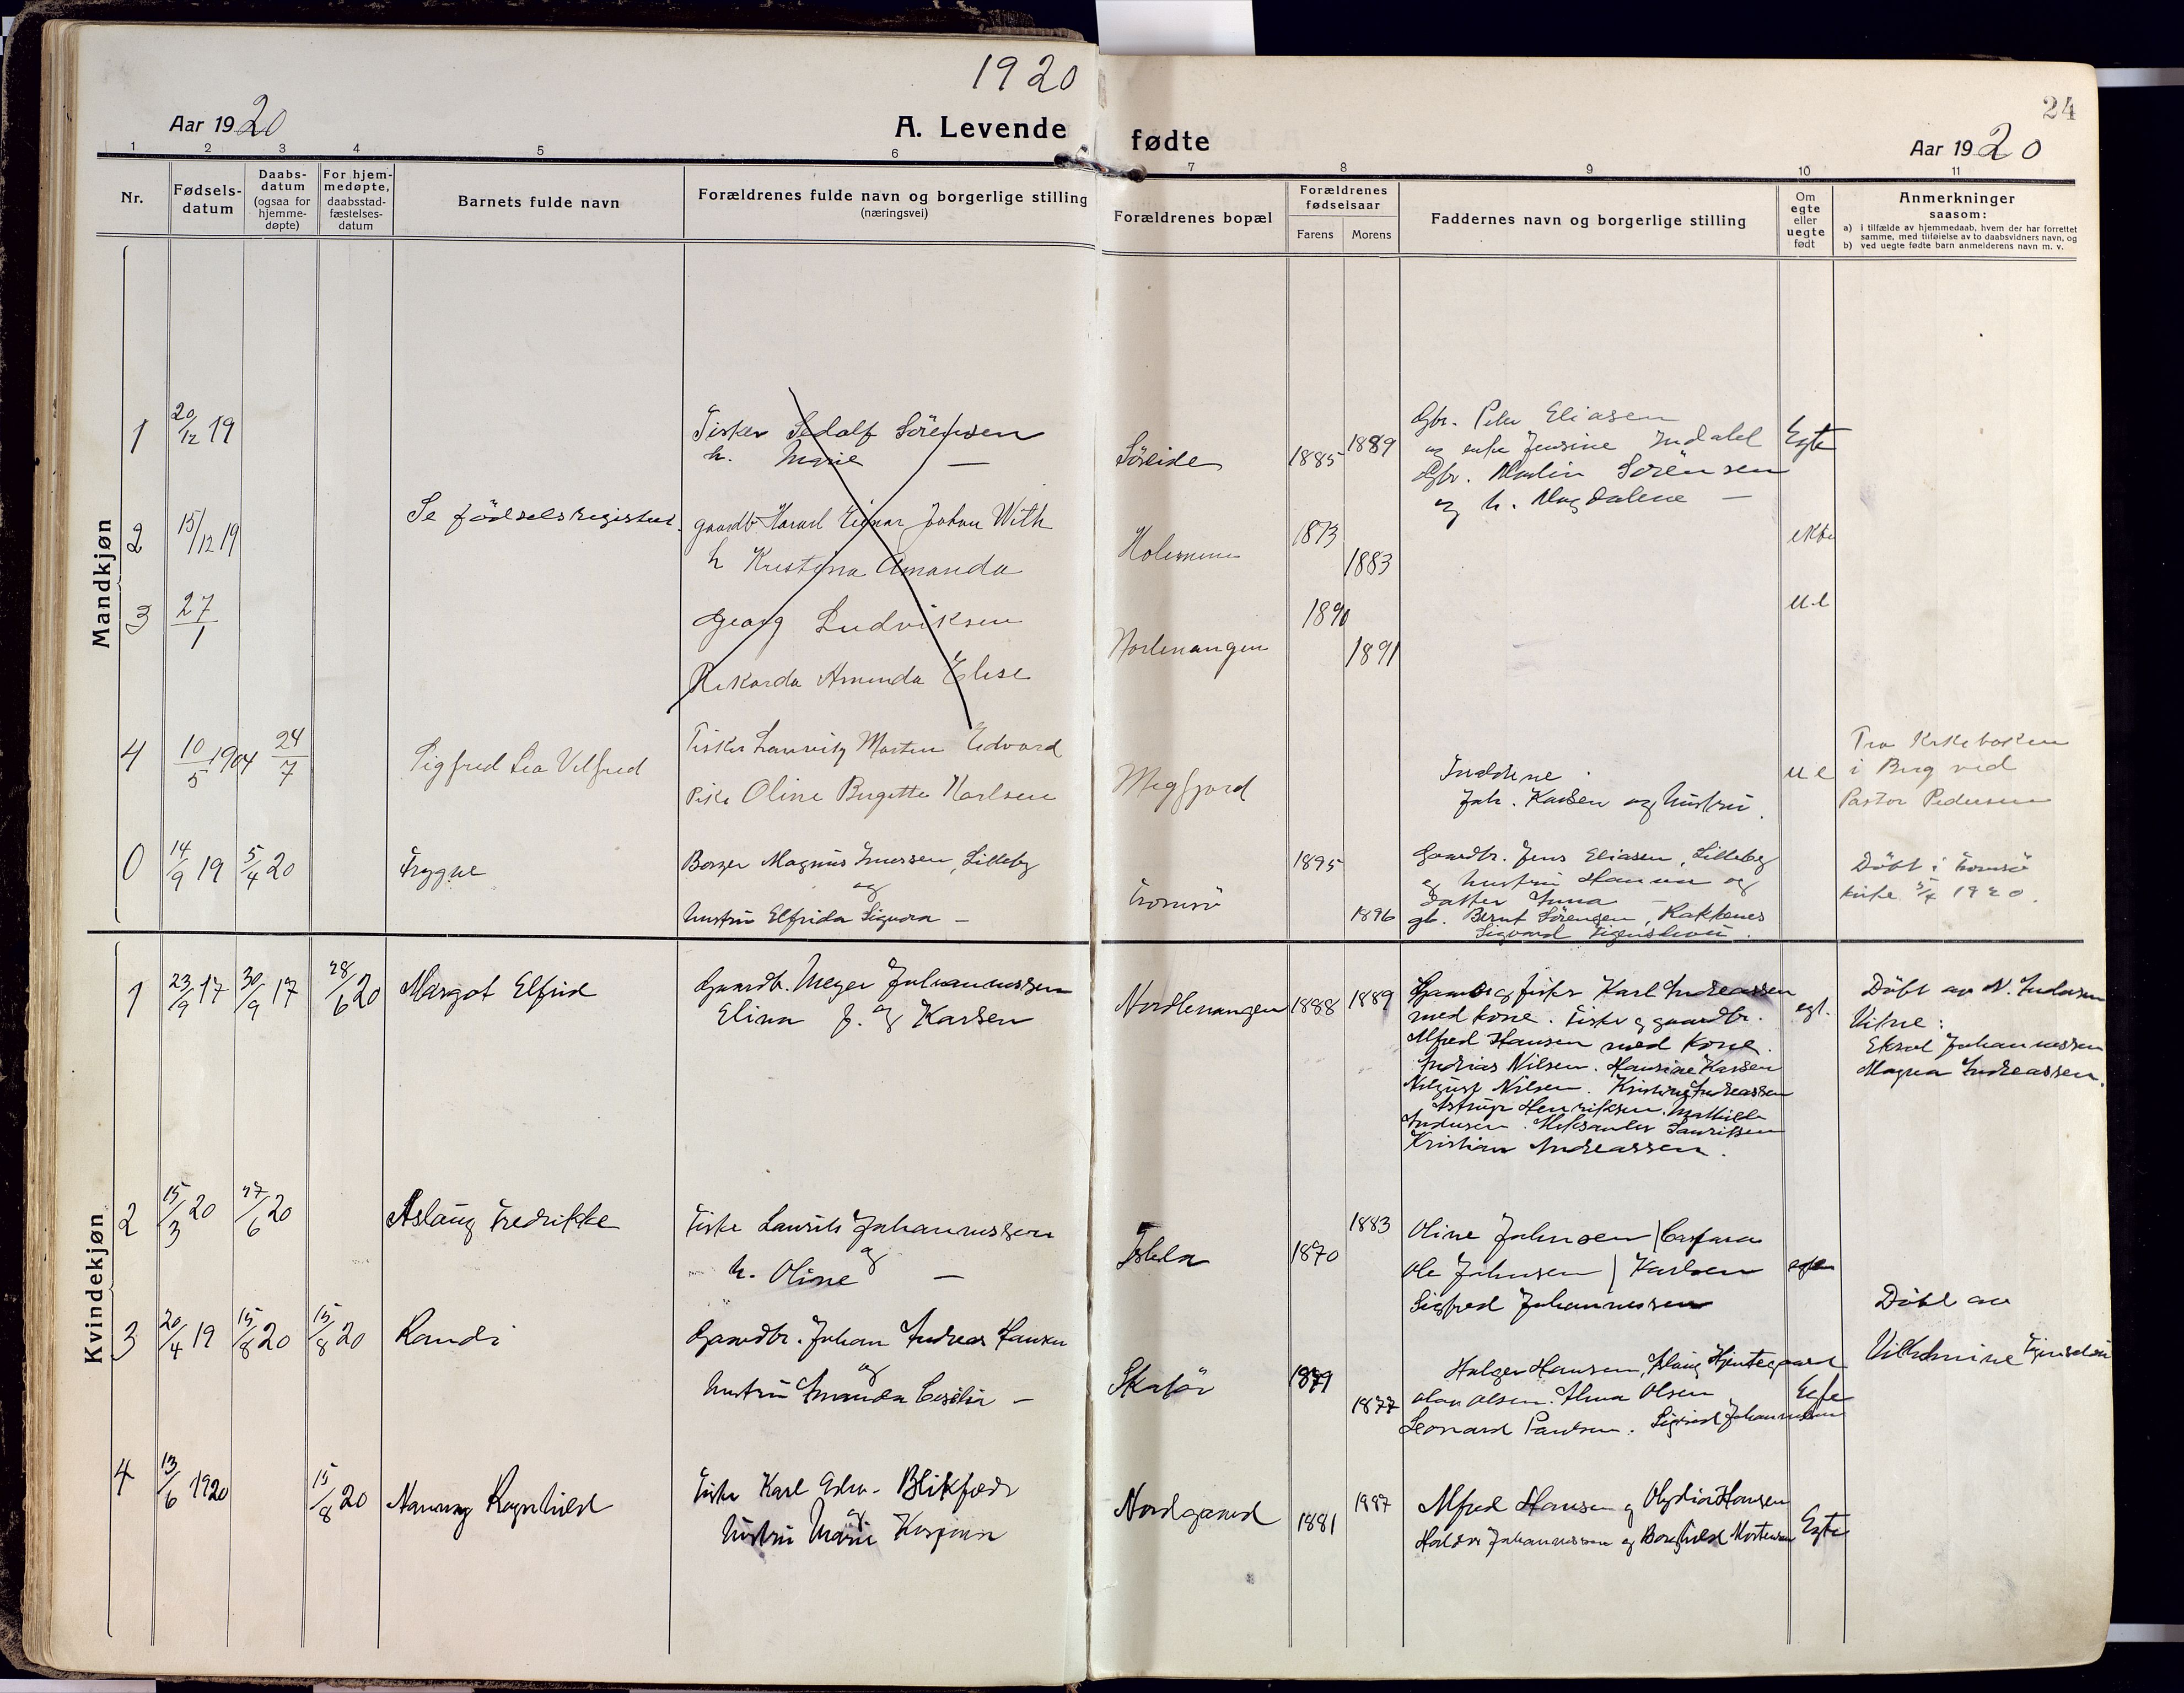 1920
24
Aar 1920
A. Levende
fødte
Aar 1920
1 2 3 4 5 6 7 8 9 10 11
Nr.
Fødsels-
datum
Daabs-
datum
(ogsaa for
hjemme-
døpte)
For hjem-
medøpte,
daabsstad-
fæstelses-
datum
Barnets fulde navn
Forældrenes fulde navn og borgerlige stilling
(næringsvei)
Forældrenes bopæl
Forældrenes
fødselsaar
Farens Morens
Faddernes navn og borgerlige stilling
Om
egte
eller
uegte
født
Anmerkninger
saasom:
a) i tilfælde av hjemmedaab, hvem der har forrettet
samme, med tilføielse av to daabsvidners navn, og
b) ved uegte fødte barn anmelderens navn m. v.
Mandkjøn
1 20/12 19
Fisker Sedolf Sörensen
h. Marie —
Söreide 1885 1889
Gbr. Peder Eliasen
og enke Jensine Indahl
Gbr. Martin Sörensen
og h. Magdalene —
Egte
2 15/12 19
Se födselsregistret.
gaardb. Harael Einar Johan With
h Kristina Amanda
1873
1883
ekte
3 27/1
Georg Ludviksen
Rikarda Amanda Elise
Norlenangen
1890
1891
u.e
4 10/5 1904 24/7
Sigfred Lea Vilfred
Fisker Lauritz Morten Edvard
Pike Oline Birgitte Karlsen
Mefjord
Inddine
Joh. Karlsen og hustru.
u e
Fra Kirkeboken
i Berg ved
Pastor Pedersen
0 14/9 19 5/4 20
Trygve
Borger Magnus Jenssen, Lilleby
og
hustru Elfrida Signora —
Tromsö
1895
1896
Gaardbr. Jens Eliasen, Lilleby
og hustru Hanna og
Datter Anna —
gb. Bernt Sörensen, Rakkenes
Sigvard
Döbt i Tromsö
kirke 5/4 1920.
Kvindekjøn
1 23/9 17 30/9 17 28/6 20
Margot Elfrid
Gaardb. Meyer Johannessen
og
Elina J. Karlsen
Nordlenangen 1888 1889
Gaardb og fisker Karl Andreassen
med kone. Fisker og gaardbr.
Alfred Hansen med kone.
Andreas Nilsen. Hansine Karlsen
Nilsen. Kristine Andreassen
Henriksen. Mathilde
Andersen. Aleksander Lauritsen
Kristian Andreassen.
egt.
Döbt av N. Andersen
Vitne:
Johannessen
Magna Andreassen.
2 15/3 20 27/6 20
Aslaug Fredrikke
Fisker Laurits Johannessen
og
h. Oline —
1870
1883
Oline Johnsen / Caspara
Ole Johnsen / Karlsen
Sigfred Johannessen
egte
3 20/4 19 15/8 20 15/8 20
Randi
Gaardbr. Johan Andreas Hansen
og
hustru Amanda Cesilia —
1879
1877
Holger Hansen, Aslaug Hjertegaard
Olav Olsen. Alma Olsen
Leonard Paulsen. Sigrid Johannessen
Egte
Döbt av
Vilhelmine
4 13/6 1920 15/8 20
Ragnhild
Fisker Karl Edv. Blikfeldt
og
hustru Marie Kaspara
Nordgaard
1881
1887
Alfred Hansen og Olydia Hansen
Johannessen og Borghild Mortensen
Egte